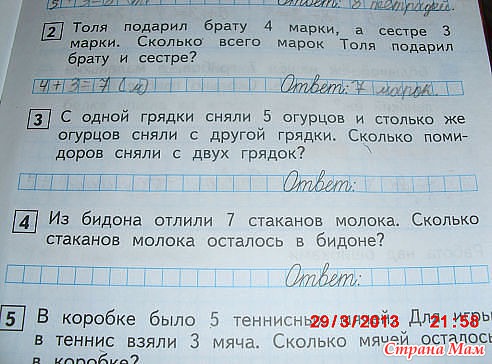 5 + 3 = 8 Ответ: 8 тетрадей.
2 Толя подарил брату 4 марки, а сестре 3
марки. Сколько всего марок Толя подарил
брату и сестре?
4+3=7 (м) Ответ: 7 марок.
3 С одной грядки сняли 5 огурцов и столько же
огурцов сняли с другой грядки. Сколько поми-
доров сняли с двух грядок?
Ответ:
4 Из бидона отлили 7 стаканов молока. Сколько
стаканов молока осталось в бидоне?
Ответ:
5 В коробке было 5 теннисных мячей. Для игры
29/3/2013 21:58
в теннис взяли 3 мяча. Сколько мячей осталось
в коробке?
Страна Мам